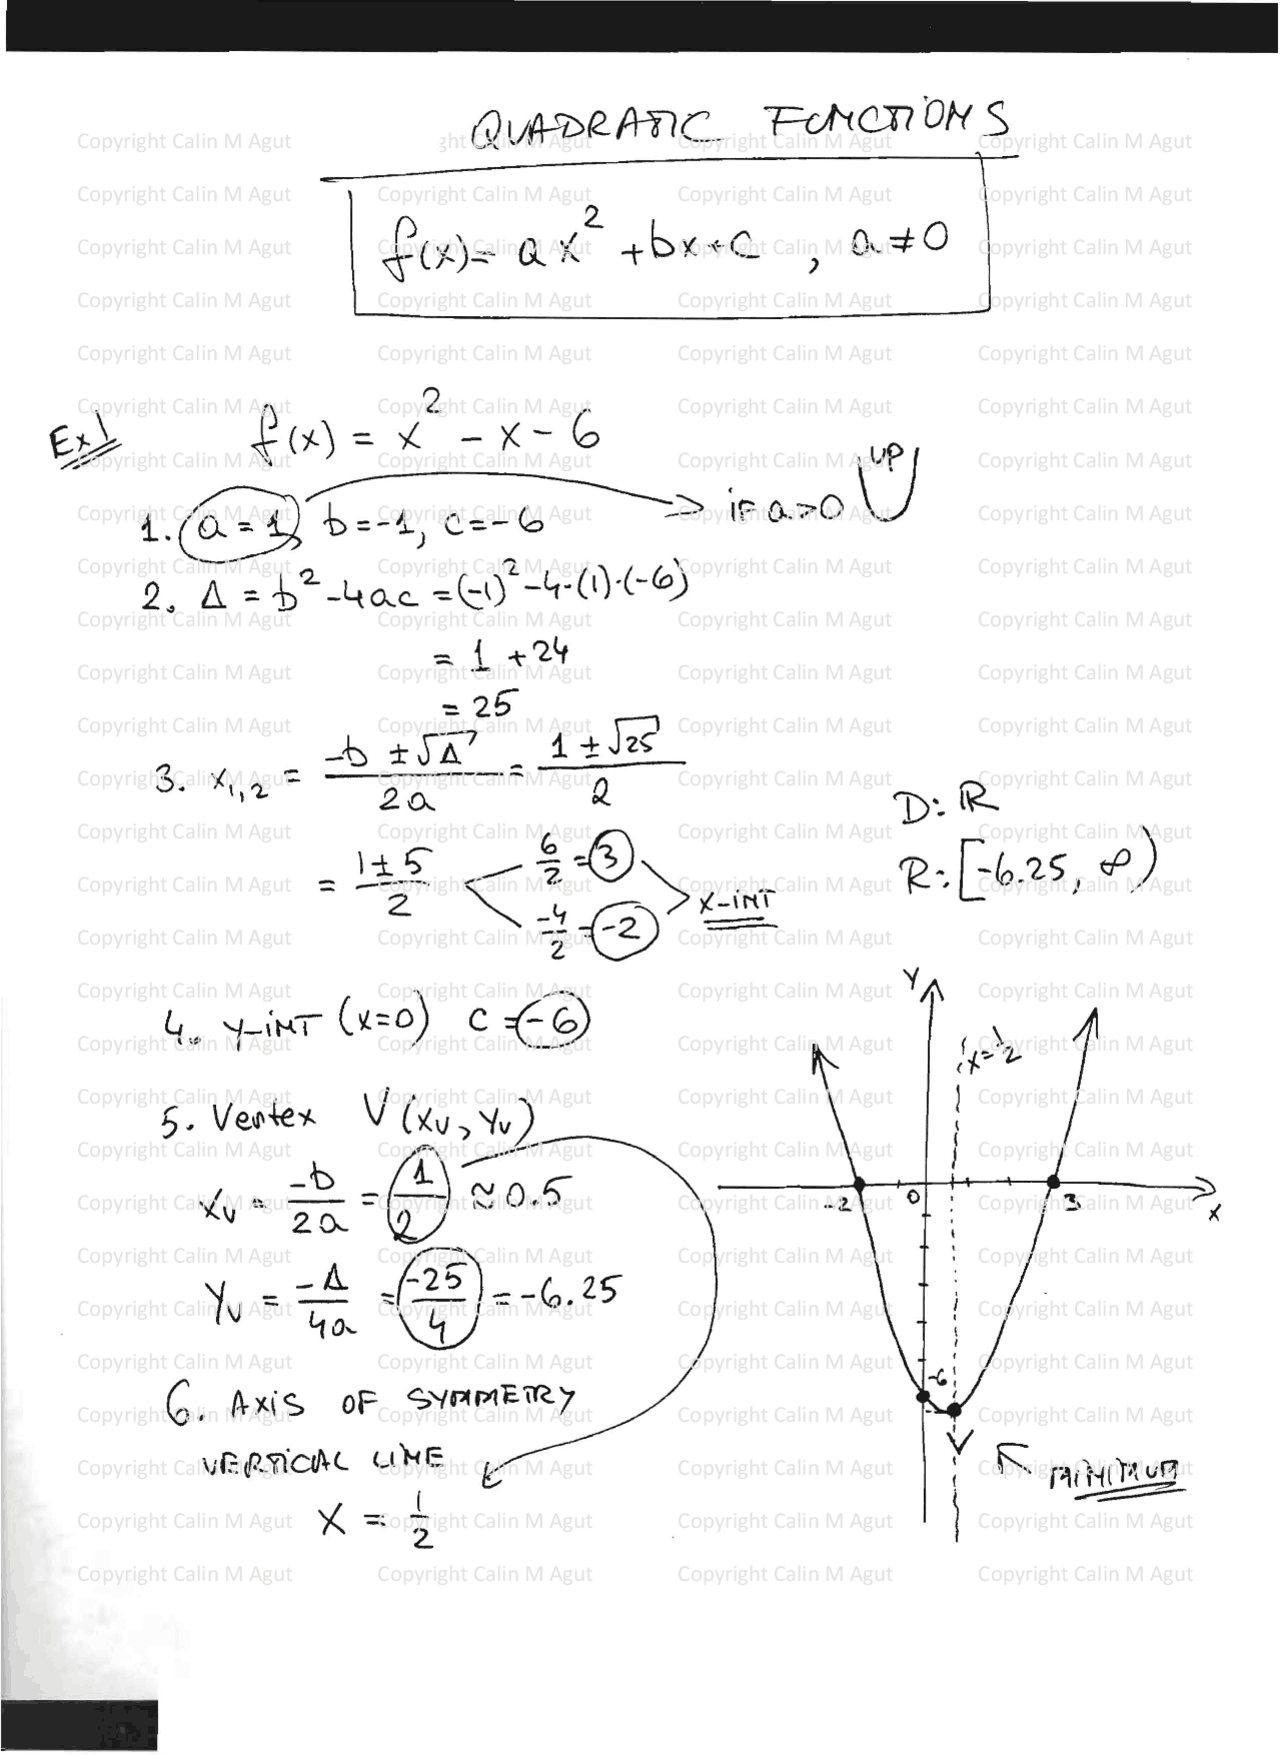 QUADRATIC FUNCTIONS
f(x)= ax² +bx+c , a≠0
Ex1 f(x) = x² - x - 6
1. a=1, b=-1, c=-6 → if a>0 UP
2. Δ = b² -4ac = (-1)² -4·(1)·(-6)
= 1 +24
= 25
3. x₁,₂ = (-b ±√Δ)/(2a) = (1 ±√25)/2
D: ℝ
= (1± 5)/2 6/2 = 3
-4/2 = -2 X-INT
R: [-6.25, ∞)
4. y-INT (x=0) c = -6
5. Vertex V(xv, yv)
xv = -b/2a = 1/2 ≈ 0.5
yv = -Δ/4a = -25/4 = -6.25
6. AXIS OF SYMMETRY
VERTICAL LINE
X = 1/2
Y
x=1/2
-2 0 3 X
-6
MINIMUM
Copyright Calin M Agut